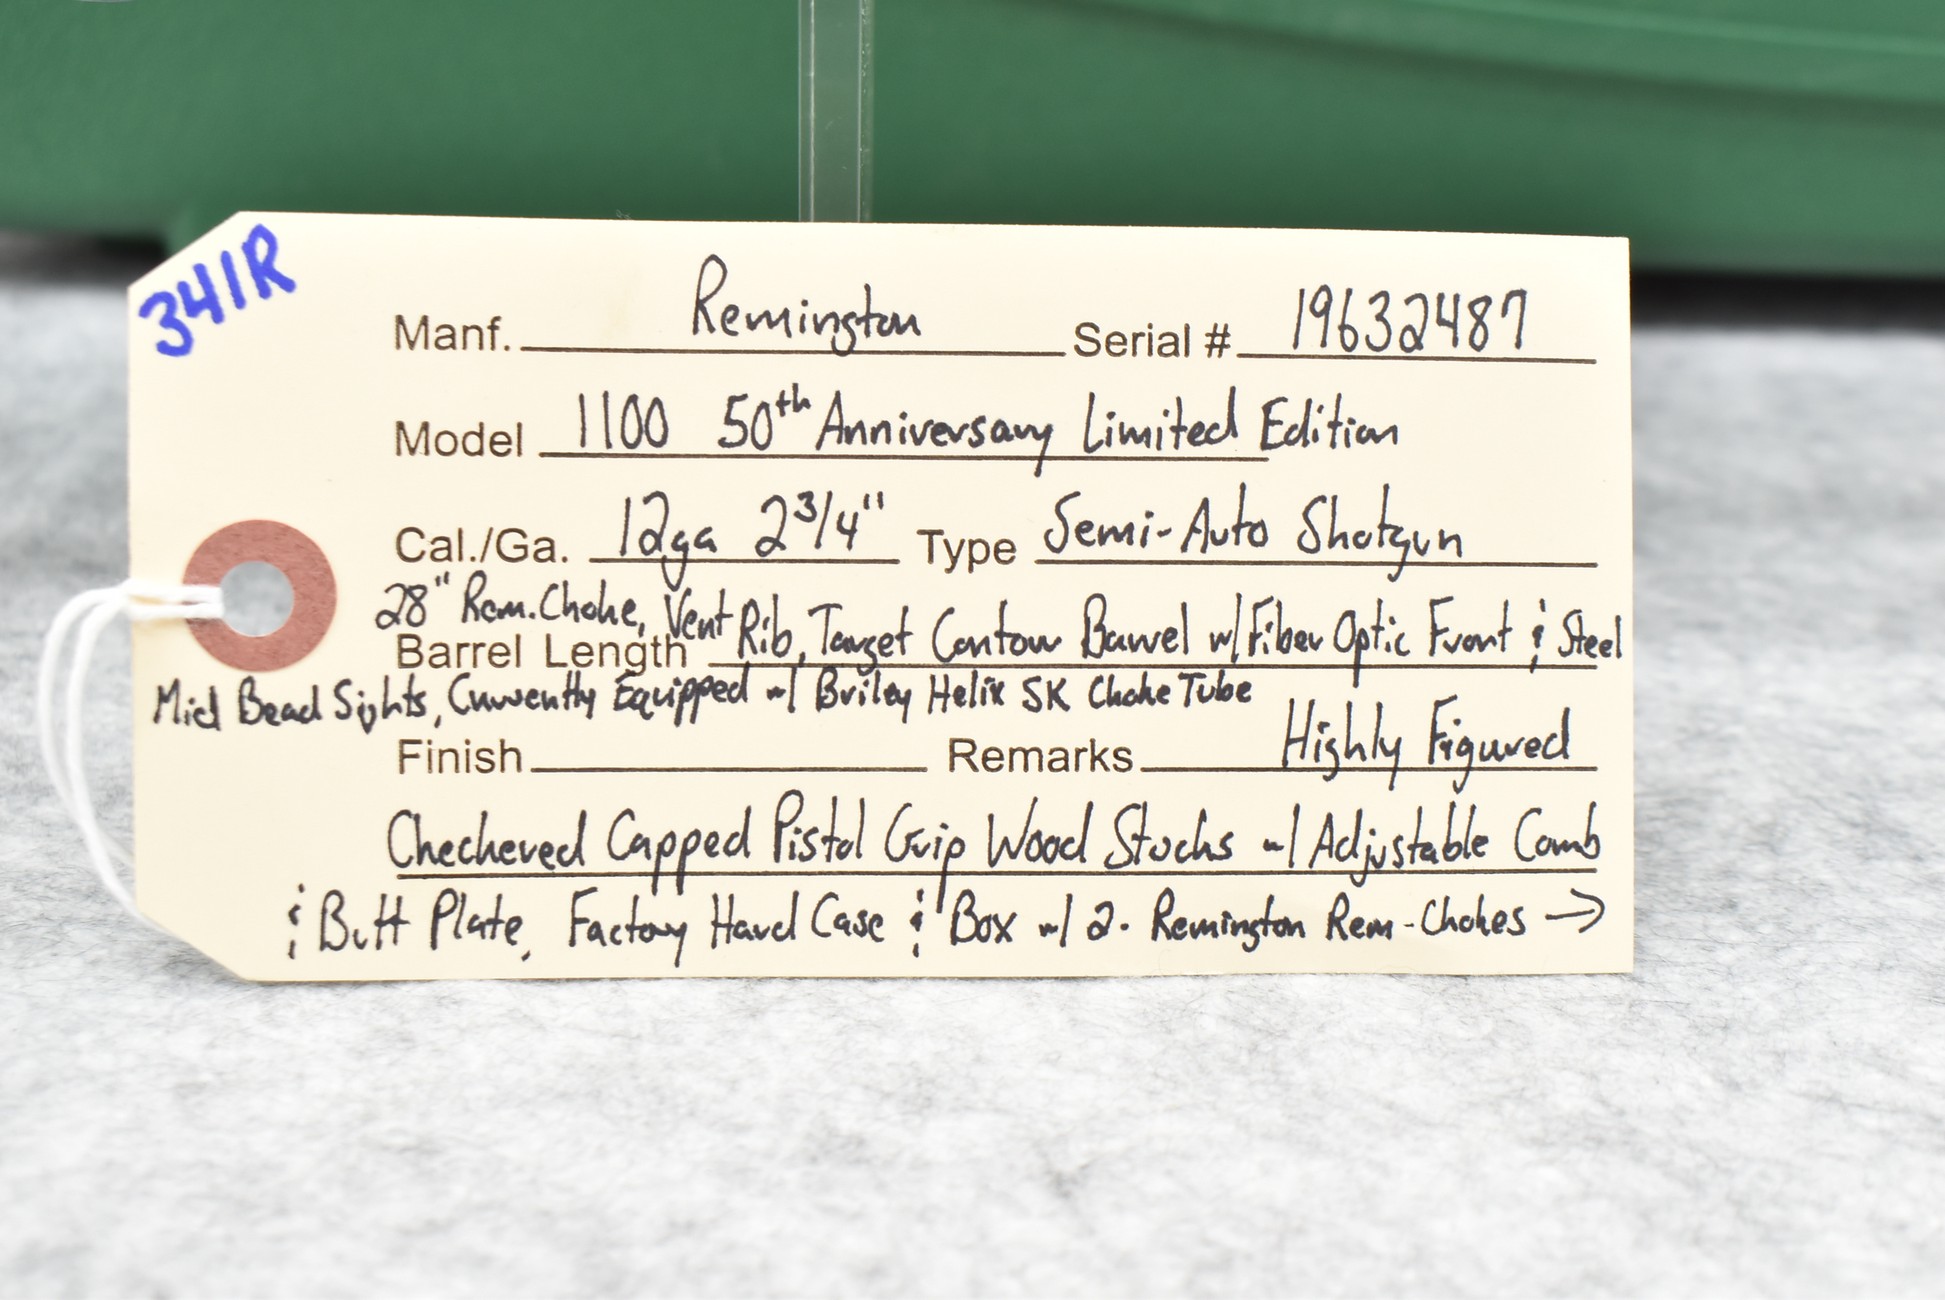 341R
Manf. Remington Serial # 19632487
Model 1100 50th Anniversary Limited Edition
Cal./Ga. 12ga 2 3/4" Type Semi-Auto Shotgun
28" Rem. Choke, Vent Rib, Target Contour Barrel w/ Fiber Optic Front & Steel
Barrel Length
Mid Bead Sights, Currently Equipped w/ Briley Helix SK Choke Tube
Finish Remarks Highly Figured
Checkered Capped Pistol Grip Wood Stocks w/ Adjustable Comb
& Butt Plate, Factory Hard Case & Box w/ 2. Remington Rem-Chokes →